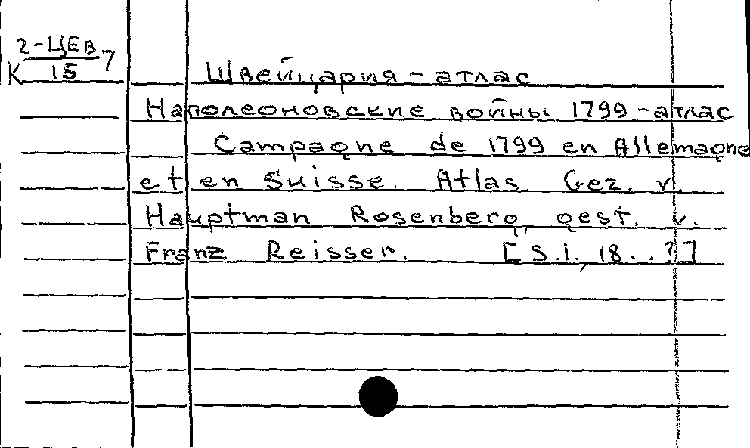 2-ЦЕВ
К 15 7
Швейцария-атлас
Наполеоновские войны 1799-атлас
Campagne de 1799 en Allemagne
et en Suisse. Atlas Gez. v.
Hauptman Rosenberg, gest. v.
Franz Reisser. [S.l., 18..?]